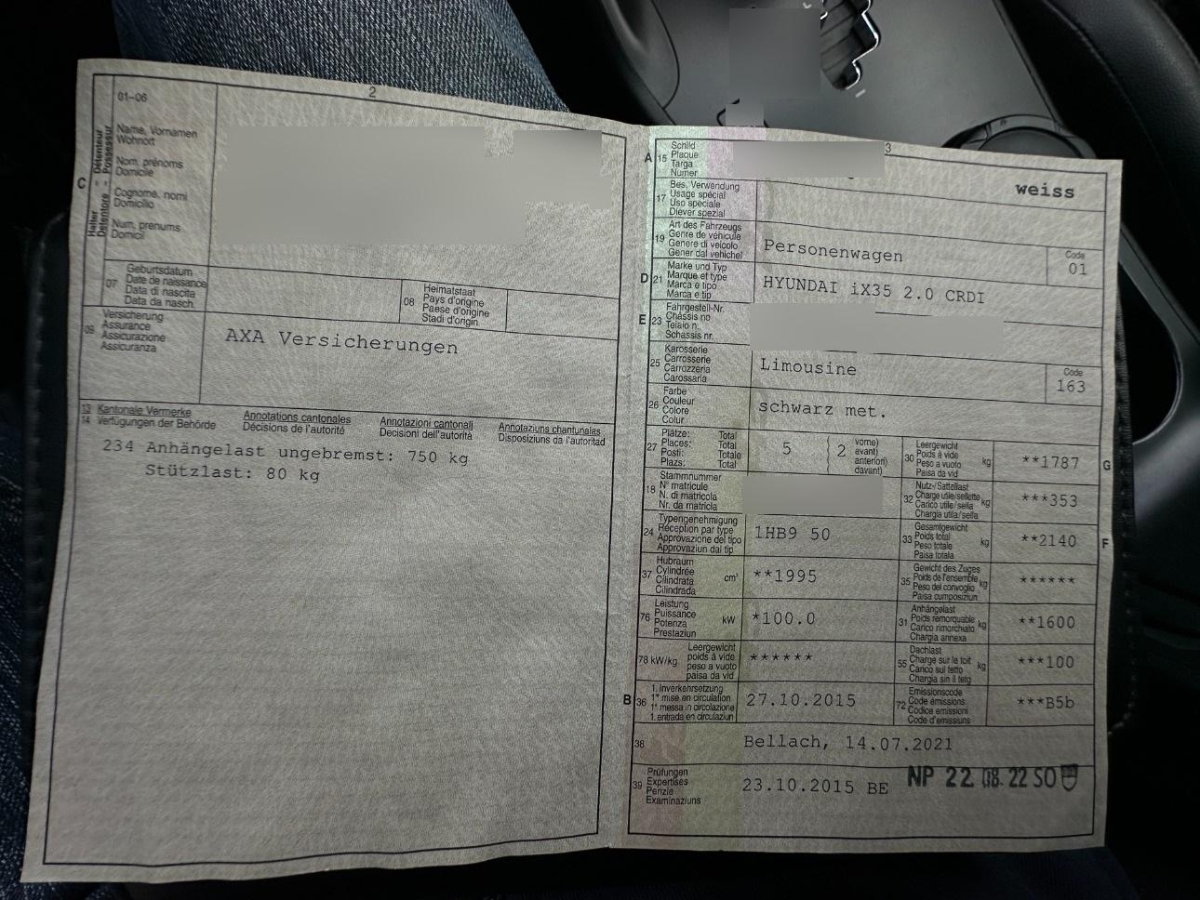 2
01–06
C
Halter
Détenteur
Detentore
Possessur
Name, Vornamen
Wohnort
Nom, prénoms
Domicile
Cognome, nomi
Domicilio
Num, prenums
Domicil
07
Geburtsdatum
Date de naissance
Data di nascita
Data da nasch.
08
Heimatstaat
Pays d'origine
Paese d'origine
Stadi d'origin.
09
Versicherung
Assurance
Assicurazione
Assicuranza
AXA Versicherungen
13 Kantonale Vermerke Annotations cantonales Annotazioni cantonali Annotaziuns chantunalas
14 Verfügungen der Behörde Décisions de l'autorité Decisioni dell'autorità Disposiziuns da l'autoritad
234 Anhängelast ungebremst: 750 kg
Stützlast: 80 kg
3
A
15
Schild
Plaque
Targa
Numer
weiss
17
Bes. Verwendung
Usage spécial
Uso speciale
Diever spezial
19
Art des Fahrzeugs
Genre de véhicule
Genere di veicolo
Gener dal vehichel
Personenwagen
Code
01
D
21
Marke und Typ
Marque et type
Marca e tipo
Marca e tip
HYUNDAI iX35 2.0 CRDI
E
23
Fahrgestell-Nr.
Châssis no
Telaio n.
Schassis nr.
25
Karosserie
Carrosserie
Carrozzeria
Carossaria
Limousine
Code
163
26
Farbe
Couleur
Colore
Colur
schwarz met.
27
Plätze: Total
Places: Total
Posti: Totale
Plazs: Total
5
2
vorne)
avant)
anteriori)
davant)
30
Leergewicht
Poids à vide
Peso a vuoto
Paisa da vid
kg
**1787
G
18
Stammnummer
N° matricule
N. di matricola
Nr. da matricla
32
Nutz-/Sattellast
Charge utile/sellette
Carico utile/sella
Chargia utila/sella
kg
***353
24
Typengenehmigung
Réception par type
Approvazione del tipo
Approvaziun dal tip
1HB9 50
33
Gesamtgewicht
Poids total
Peso totale
Paisa totala
kg
**2140
F
37
Hubraum
Cylindrée
Cilindrata
Cilindrada
cm³
**1995
35
Gewicht des Zuges
Poids de l'ensemble
Peso del convoglio
Paisa cumposiziun
kg
******
76
Leistung
Puissance
Potenza
Prestaziun
kW
*100.0
31
Anhängelast
Poids remorquable
Carico rimorchiato
Chargia annexa
kg
**1600
78 kW/kg
Leergewicht
poids à vide
peso a vuoto
paisa da vid
******
55
Dachlast
Charge sur le toit
Carico sul tetto
Chargia sin il tetg
kg
***100
B
36
1. Inverkehrsetzung
1re mise en circulation
1a messa in circolazione
1. entrada en circulaziun
27.10.2015
72
Emissionscode
Code émissions
Codice emissioni
Code d'emissiuns
***B5b
38
Bellach, 14.07.2021
39
Prüfungen
Expertises
Perizie
Examinaziuns
23.10.2015 BE
NP 22. 08. 22 SO